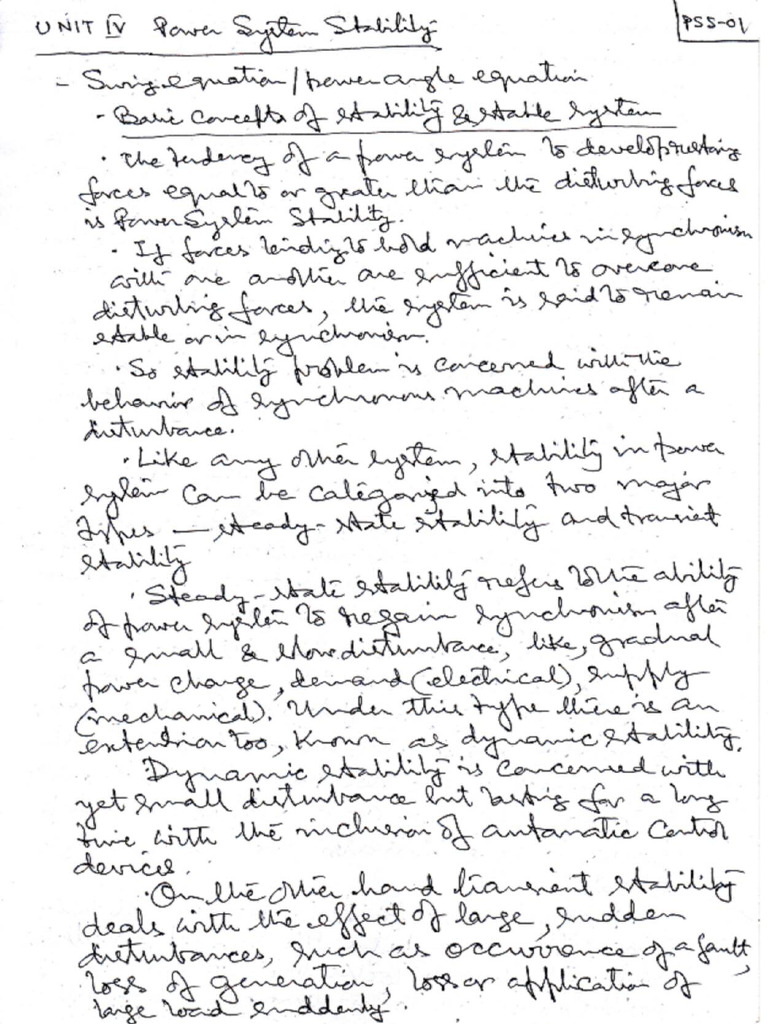 UNIT IV Power System Stability
PSS-01
- Swing equation/power angle equation
- Basic Concepts of stability & stable system
· The tendency of a power system to develop restoring
forces equal to or greater than the disturbing forces
is Power System Stability.
· If forces tending to hold machines in synchronism
with one another are sufficient to overcome
disturbing forces, the system is said to remain
stable or in synchronism.
· So stability problem is concerned with the
behavior of synchronous machines after a
disturbance.
· Like any other system, stability in power
system can be categorized into two major
types — steady-state stability and transient
stability
· Steady-state stability refers to the ability
of power system to regain synchronism after
a small & slow disturbance, like, gradual
power change, demand (electrical), supply
(mechanical). Under this type there is an
extension too, known as dynamic stability.
Dynamic stability is concerned with
yet small disturbance but lasting for a long
time with the inclusion of automatic control
devices.
· On the other hand transient stability
deals with the effect of large, sudden
disturbances, such as occurrence of a fault,
loss of generation, loss or application of
large load suddenly.